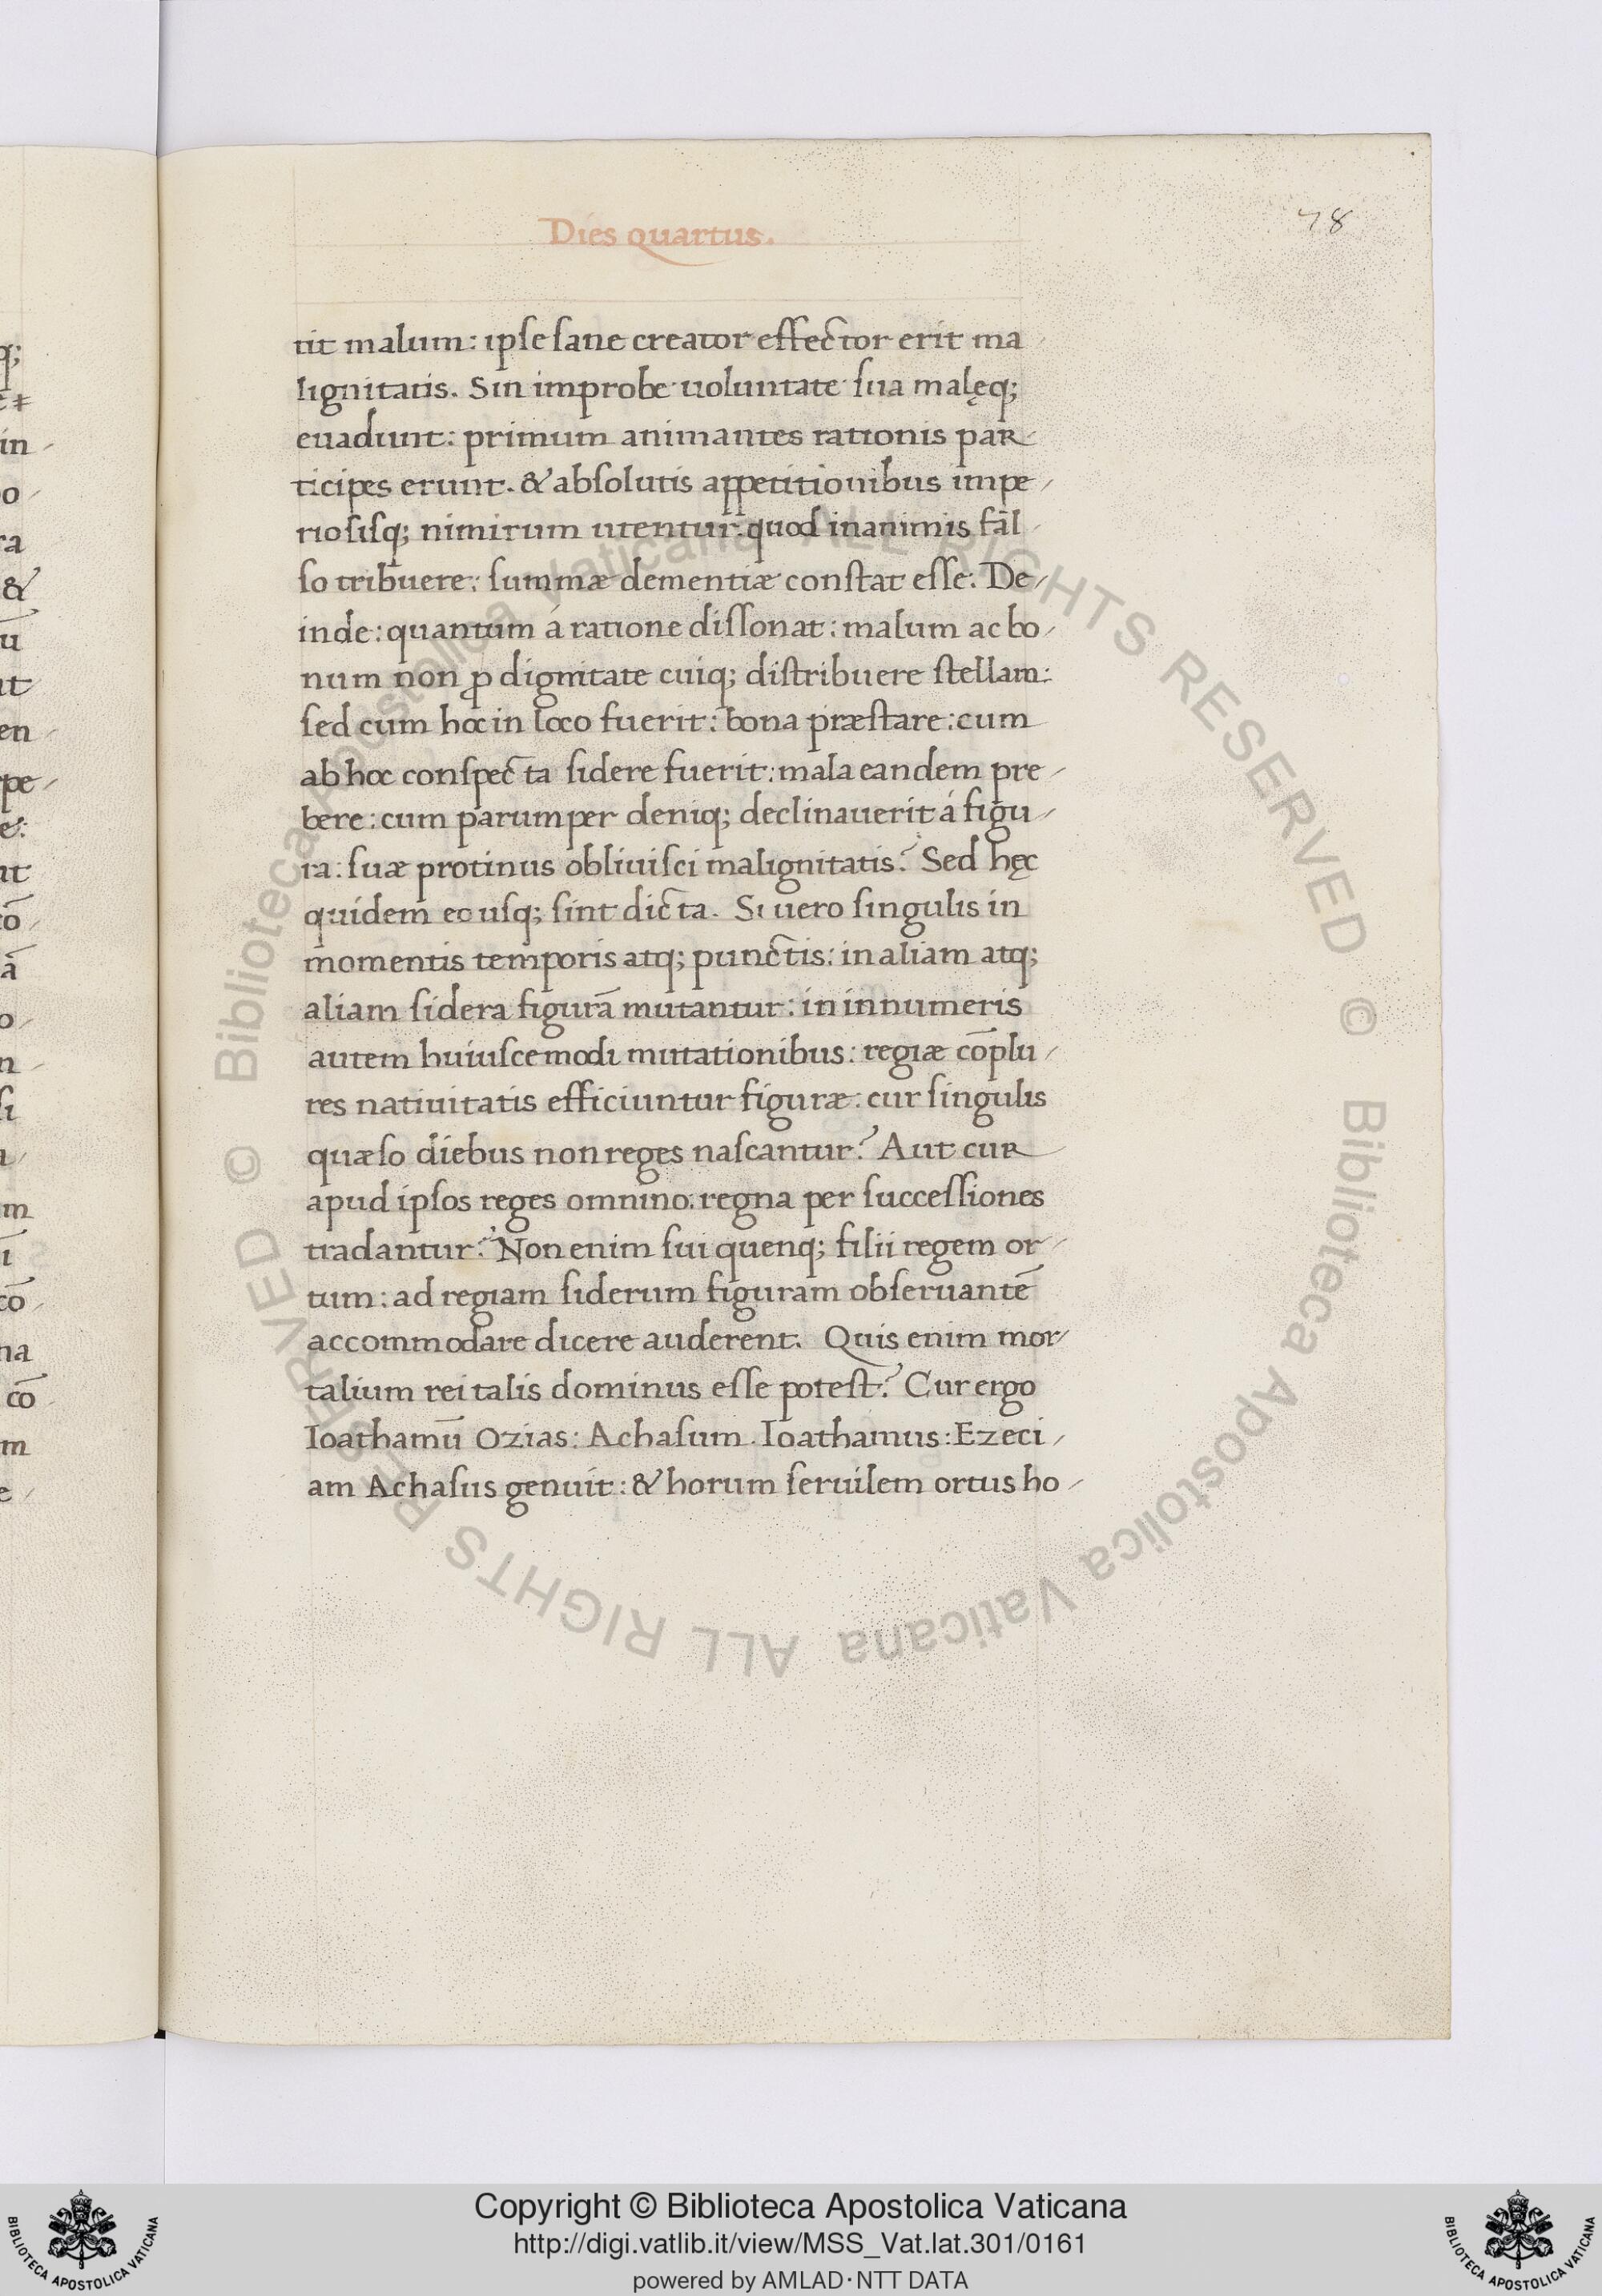 Dies quartus.
78
tit malum: ipse sane creator effector erit ma
lignitatis. Sin improbe uoluntate sua malęq;
euadunt: primum animantes rationis par
ticipes erunt. & absolutis appetitionibus impe
riosisq; nimirum utentur. quod inanimis fal
so tribuere: summæ dementiæ constat esse. De
inde: quantum á ratione dissonat: malum ac bo
num non ꝓ dignitate cuiq; distribuere stellam:
sed cum hoc in loco fuerit: bona præstare: cum
ab hoc conspecta sidere fuerit: mala eandem pre
bere: cum parumper deniq; declinauerit á figu
ra: suæ protinus obliuisci malignitatis? Sed hęc
quidem eo usq; sint dicta. Si uero singulis in
momentis temporis atq; punctis: in aliam atq;
aliam sidera figurā mutantur: in innumeris
autem huiuscemodi mutationibus: regiæ cōplu
res natiuitatis efficiuntur figuræ: cur singulis
quæso diebus non reges nascantur? Aut cur
apud ipsos reges omnino. regna per successiones
tradantur? Non enim sui quenq; filii regem or
tum: ad regiam siderum figuram obseruantē
accommodare dicere auderent. Quis enim mor
talium rei talis dominus esse potest? Cur ergo
Ioathamū Ozias: Achasum. Ioathamus: Ezeci
am Achasus genuit: & horum seruilem ortus ho
q;
in
o
ra
&
ū
ut
en
pe
e:
nt
cō
ā
o
n
si
m
ī
cō
na
cō
m
e
© Biblioteca Apostolica Vaticana ALL RIGHTS RESERVED
© Biblioteca Apostolica Vaticana ALL RIGHTS RESERVED
Copyright © Biblioteca Apostolica Vaticana
http://digi.vatlib.it/view/MSS_Vat.lat.301/0161
powered by AMLAD·NTT DATA
BIBLIOTECA APOSTOLICA VATICANA
BIBLIOTECA APOSTOLICA VATICANA